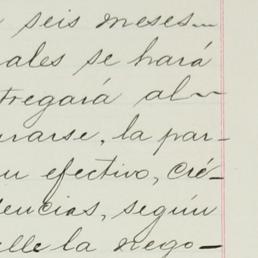 seis meses
ales se hará
tregará al
rarse, la par-
efectivo, cré-
dencias, según
elle la nego-